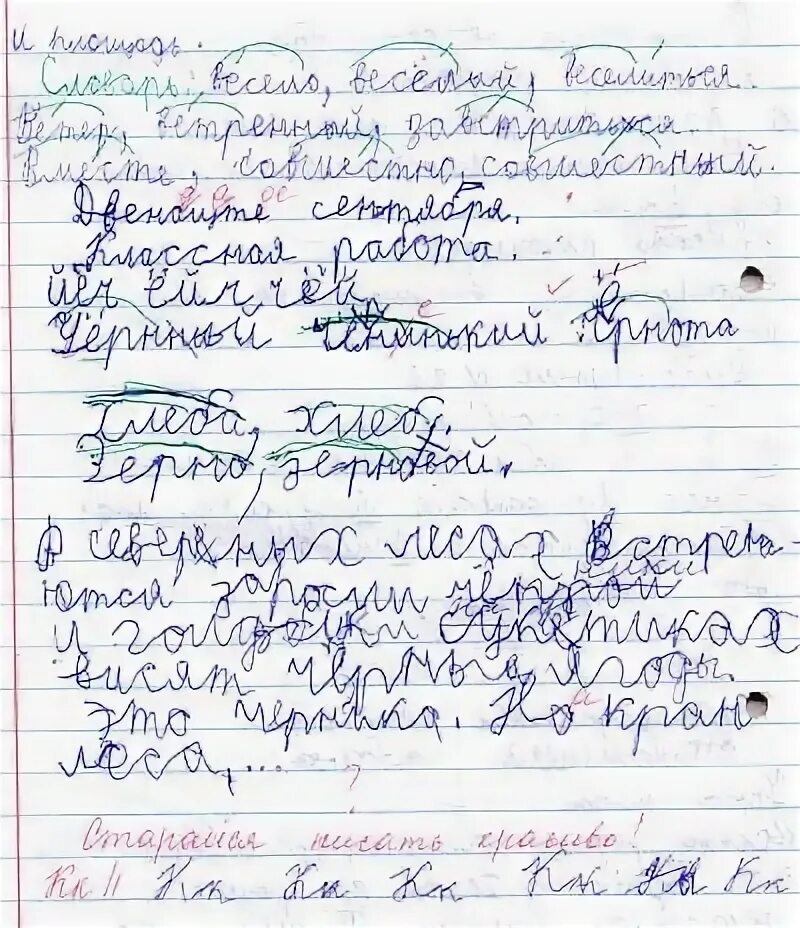 и площадь.
Словарь: весело, весёлый, веселиться.
Ветер, ветренный,
Вместе, совместно, совместный.
Двенаците сентября.
Классная работа.
йёч ёйч, чёй
Чёрнный чернота
Хлеба, хлеб,
Зерно, зерновой.
В северных лесах встреча-
ются заросли
и
висят чёрные ягоды.
это черника. На краи
леса, ...
Старайся писать красиво!
Кк || Кк Кк Кк Кк Кк Кк